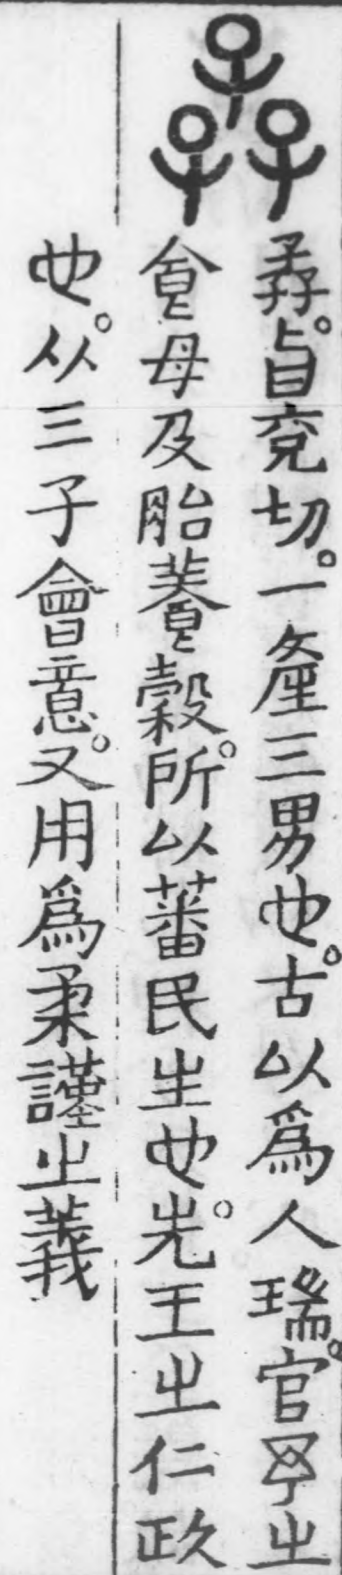 孨
孨。旨兗切。一產三男也。古以爲人瑞。官予之
食母及胎養穀。所以蕃民生也。先王之仁政
也。从三子會意。又用爲柔謹之義